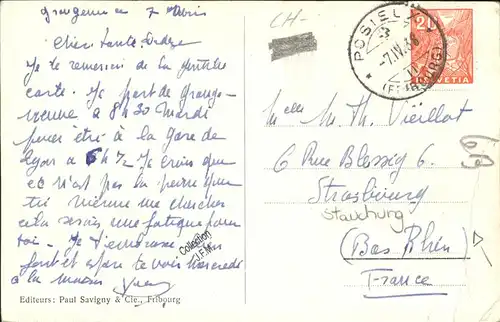 Grangeneuve 7 Avril
Chère tante
Je te remercie de ta gentille
carte. Je pars de Grange-
neuve à 8 h 30 Mardi
pour être à la gare de
à 6h ½ Je crois que
ce n'est pas la peine que
tu vienne me chercher
cela serais une fatigue pour
toi. Je t'embrasse
fort et espère te voir mercredi
à la maison
Editeurs: Paul Savigny & Cie., Fribourg
CH-
POSIEUX
-7.IV.38
(FRIBOURG)
20
HELVETIA
Melle M. Th. Vieillot
6 Rue Blessig 6.
Strasbourg
(Bas Rhin)
France
Collection
J.F.M.